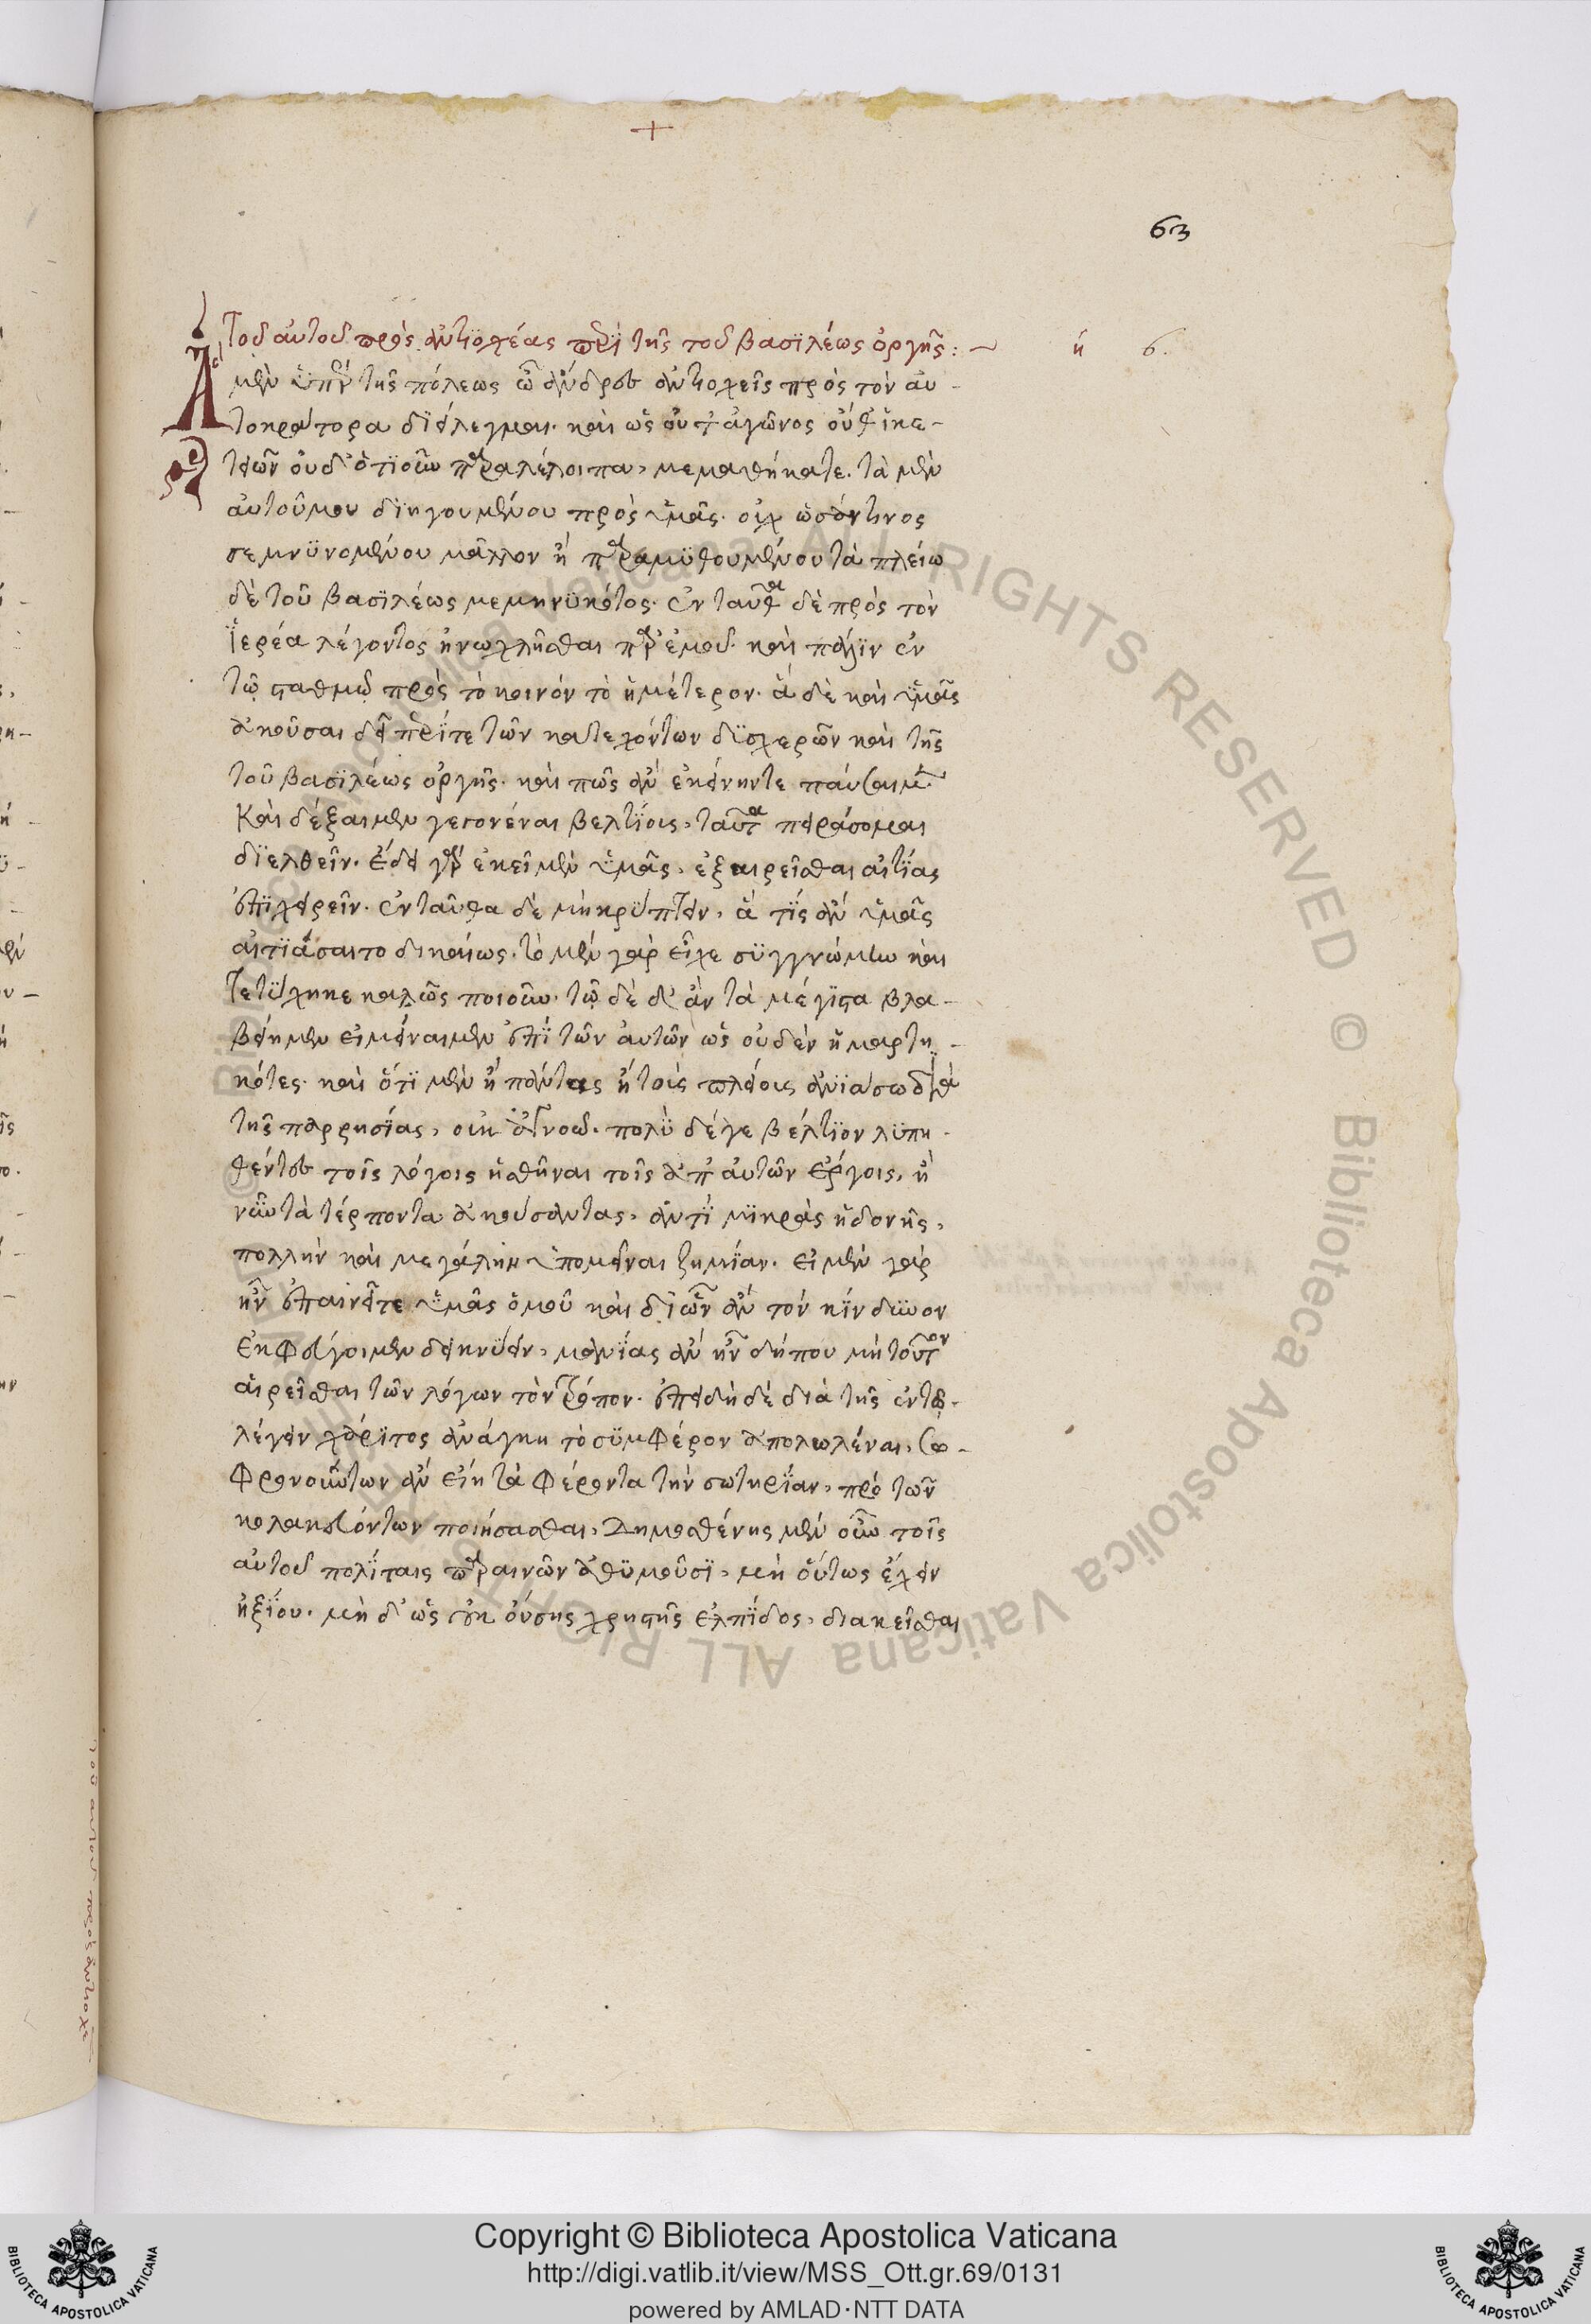 +
63
Τοῦ αὐτοῦ πρὸς ἀντιοχέας περὶ τῆς τοῦ βασιλέως ὀργῆς: ~ η 6.
Ἃ μὲν ὑπὲρ τῆς πόλεως ὦ ἄνδρες ἀντιοχεῖς πρὸς τὸν αὐ-
τοκράτορα διείλεγμαι. καὶ ὡς οὔτ ἀγῶνος οὔθ ἱκε-
τειῶν οὐδ ὁτιοῦν παραλέλοιπα, μεμαθήκατε. τὰ μὲν
αὐτοῦ μου διηγουμένου πρὸς ὑμᾶς. οὐχ ὡς ὄντινος
σεμνυνομένου μᾶλλον ἢ παραμυθουμένου τὰ πλείω
δὲ τοῦ βασιλέως μεμηνυκότος. ἐνταῦθα δὲ πρὸς τὸν
ἱερέα λέγοντος ἠνωχλῆσθαι παρ ἐμοῦ. καὶ πάλιν ἐν
τῷ σταθμῷ πρὸς τὸ κοινὸν τὸ ἡμέτερον. ἃ δὲ καὶ ὑμᾶς
ἀκοῦσαι δεῖ περί τε τῶν κατεχόντων δυσχερῶν καὶ τῆς
τοῦ βασιλέως ὀργῆς. καὶ πῶς ἂν ἐκείνην τε παύσαιμεν
καὶ δέξαιμεν γεγονέναι βελτίους, ταῦτα πειράσομαι
διελθεῖν. ἔδει γὰρ ἐκεῖ μὲν ὑμᾶς, ἐξαιρεῖσθαι αἰτίας
ἐπιχειρεῖν. ἐνταῦθα δὲ μὴ κρύπτειν, ἅ τις ἂν ὑμᾶς
αἰτιάσαιτο δικαίως. τὸ μὲν γὰρ εἶχε συγγνώμην καὶ
τετύχηκε καλῶς ποιοῦν. τῷ δὲ δ ἂν τὰ μέγιστα βλα-
βείημεν εἰ μείναιμεν ἐπὶ τῶν αὐτῶν ὡς οὐδὲν ἡμαρτη-
κότες. καὶ ὅτι μὲν ἢ πάντας ἢ τοὺς πλείους ἀνιάσω διὰ
τῆς παρρησίας, οὐκ ἀγνοῶ. πολὺ δέ γε βέλτιον λυπη-
θέντες τοῖς λόγοις ἡσθῆναι τοῖς ἀπ αὐτῶν ἔργοις, ἢ
νῦν τὰ τέρποντα ἀκούσαντας, ἀντὶ μικρᾶς ἡδονῆς,
πολλὴν καὶ μεγάλην ὑπομεῖναι ζημίαν. εἰ μὲν γὰρ
ἦν ἐπαινεῖν τε ὑμᾶς ὁμοῦ καὶ δι ὧν ἂν τὸν κίνδυνον
ἐκφύγοιμεν δεικνύειν, μανίας ἂν ἦν δήπου μὴ τοῦτον
αἱρεῖσθαι τῶν λόγων τὸν τρόπον. ἐπειδὴ δὲ διὰ τῆς ἐν τῷ
λέγειν χάριτος ἀνάγκη τὸ συμφέρον ἀπολωλέναι, σω-
φρονούντων ἂν εἴη τὰ φέροντα τὴν σωτηρίαν, πρὸ τῶν
κολακευόντων ποιήσασθαι. Δημοσθένης μὲν οὖν τοῖς
αὑτοῦ πολίταις παραινῶν ἀθυμοῦσι, μὴ οὕτως ἔχειν
ἠξίου. μὴ δ ὡς οὐκ οὔσης χρηστῆς ἐλπίδος, διακεῖσθαι
Copyright © Biblioteca Apostolica Vaticana
http://digi.vatlib.it/view/MSS_Ott.gr.69/0131
powered by AMLAD·NTT DATA